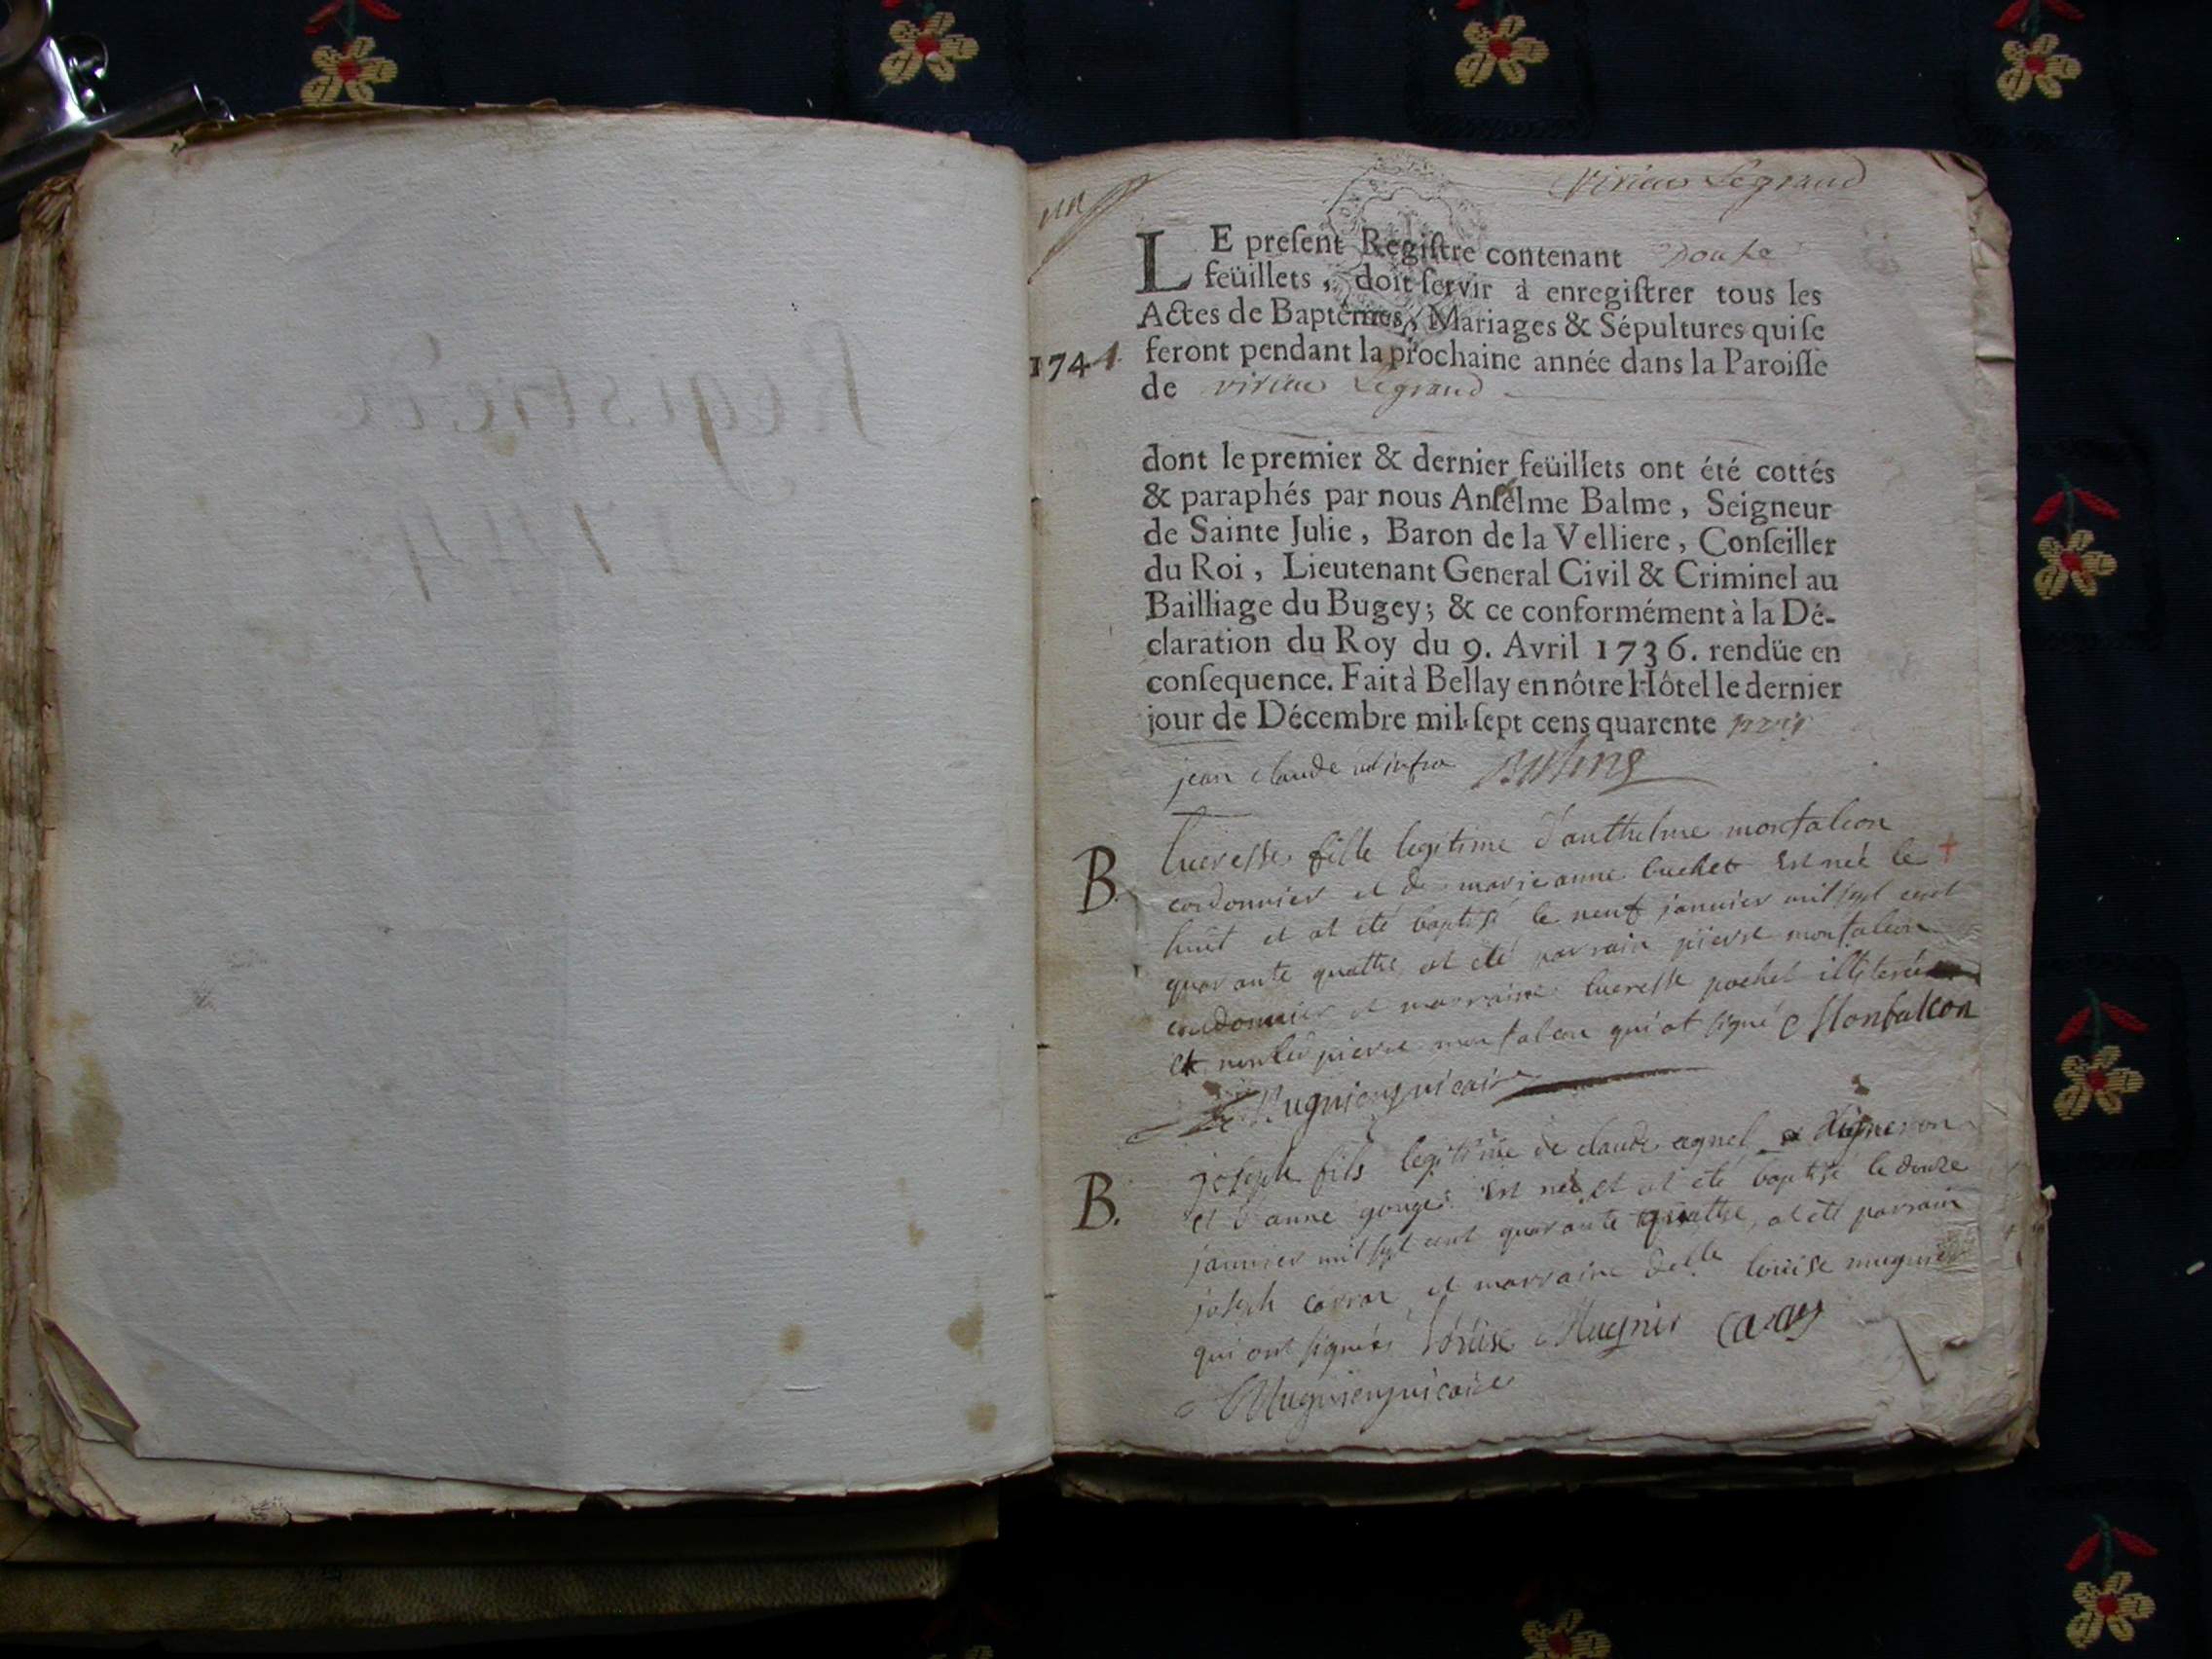 Registrée
1744
un
Virieu Legrand
LE preſent Regiſtre contenant Douze
feüillets, doit ſervir à enregiſtrer tous les
Actes de Baptêmes, Mariages & Sépultures qui ſe
1744 feront pendant la prochaine année dans la Paroiſſe
de virieu Legrand
dont le premier & dernier feüillets ont été cottés
& paraphés par nous Anſelme Balme, Seigneur
de Sainte Julie, Baron de la Velliere, Conſeiller
du Roi, Lieutenant General Civil & Criminel au
Bailliage du Bugey; & ce conformément à la Dé-
claration du Roy du 9. Avril 1736. rendüe en
conſequence. Fait à Bellay en nôtre Hôtel le dernier
jour de Décembre mil ſept cens quarente trois
jean claude ut infra Balme
B. Lucresse fille legitime d'anthelme monfalcon
cordonnier et de marie anne buchet Est née le
huit et at été baptisé le neuf janvier mil sept cent
quarante quattre, at été parrain pierre monfalcon
cordonnier et marraine lucresse pochet illiterée
et non led pierre monfalcon qui at signé Monfalcon
Mugnier vicaire
B. joseph fils legitime de claude agnel Vigneron
et d'anne gouge Est né et at été baptisé le douze
janvier mil sept cent quarante quattre, at été parrain
joseph carrar et marraine delle louise mugnier
qui ont signés Louise Mugnir
Mugnier vicaire